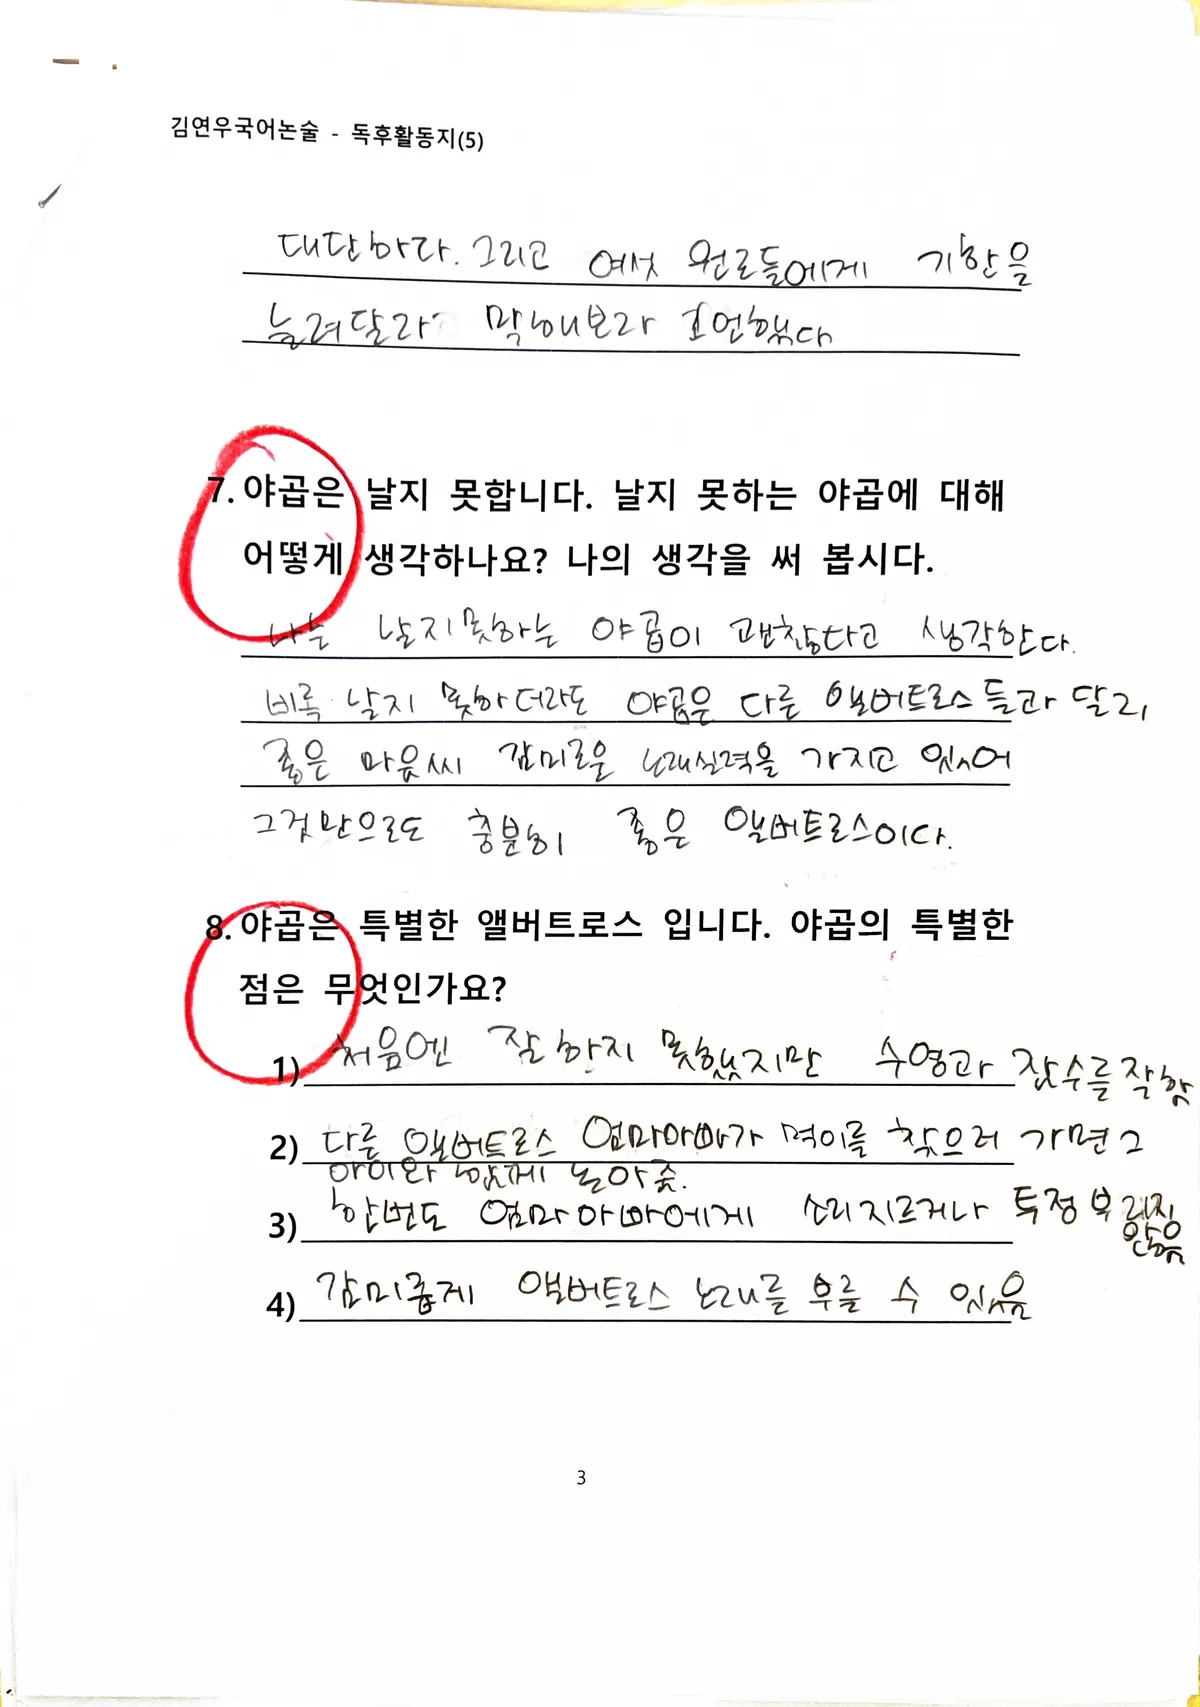 김연우국어논술 - 독후활동지(5)
대단하다. 그리고 여섯 원로들에게 기한을
늘려달라 말해보라 조언했다
7. 야곱은 날지 못합니다. 날지 못하는 야곱에 대해
어떻게 생각하나요? 나의 생각을 써 봅시다.
나는 날지못하는 야곱이 괜찮다고 생각한다.
비록 날지 못하더라도 야곱은 다른 앨버트로스들과 달리,
좋은 마음씨 감미로운 노래실력을 가지고 있어
그것만으로도 충분히 좋은 앨버트로스이다.
8. 야곱은 특별한 앨버트로스 입니다. 야곱의 특별한
점은 무엇인가요?
1) 처음엔 잘 하지 못했지만 수영과 잠수를 잘함
2) 다른 앨버트로스 엄마아빠가 먹이를 찾으러 가면 그
아이와 함께 놀아줌.
3) 한번도 엄마아빠에게 소리지르거나 투정 부리지
않음
4) 감미롭게 앨버트로스 노래를 부를 수 있음
3